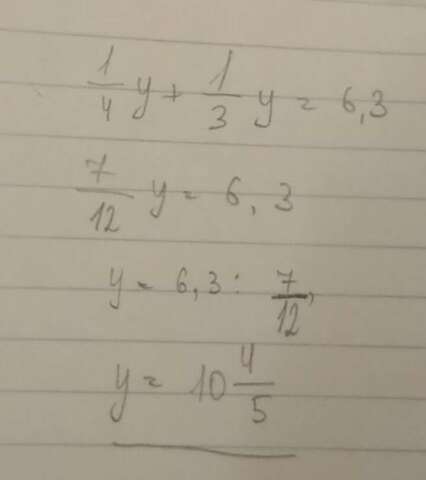 1/4 y + 1/3 y = 6,3
7/12 y = 6,3
y = 6,3 : 7/12
y = 10 4/5